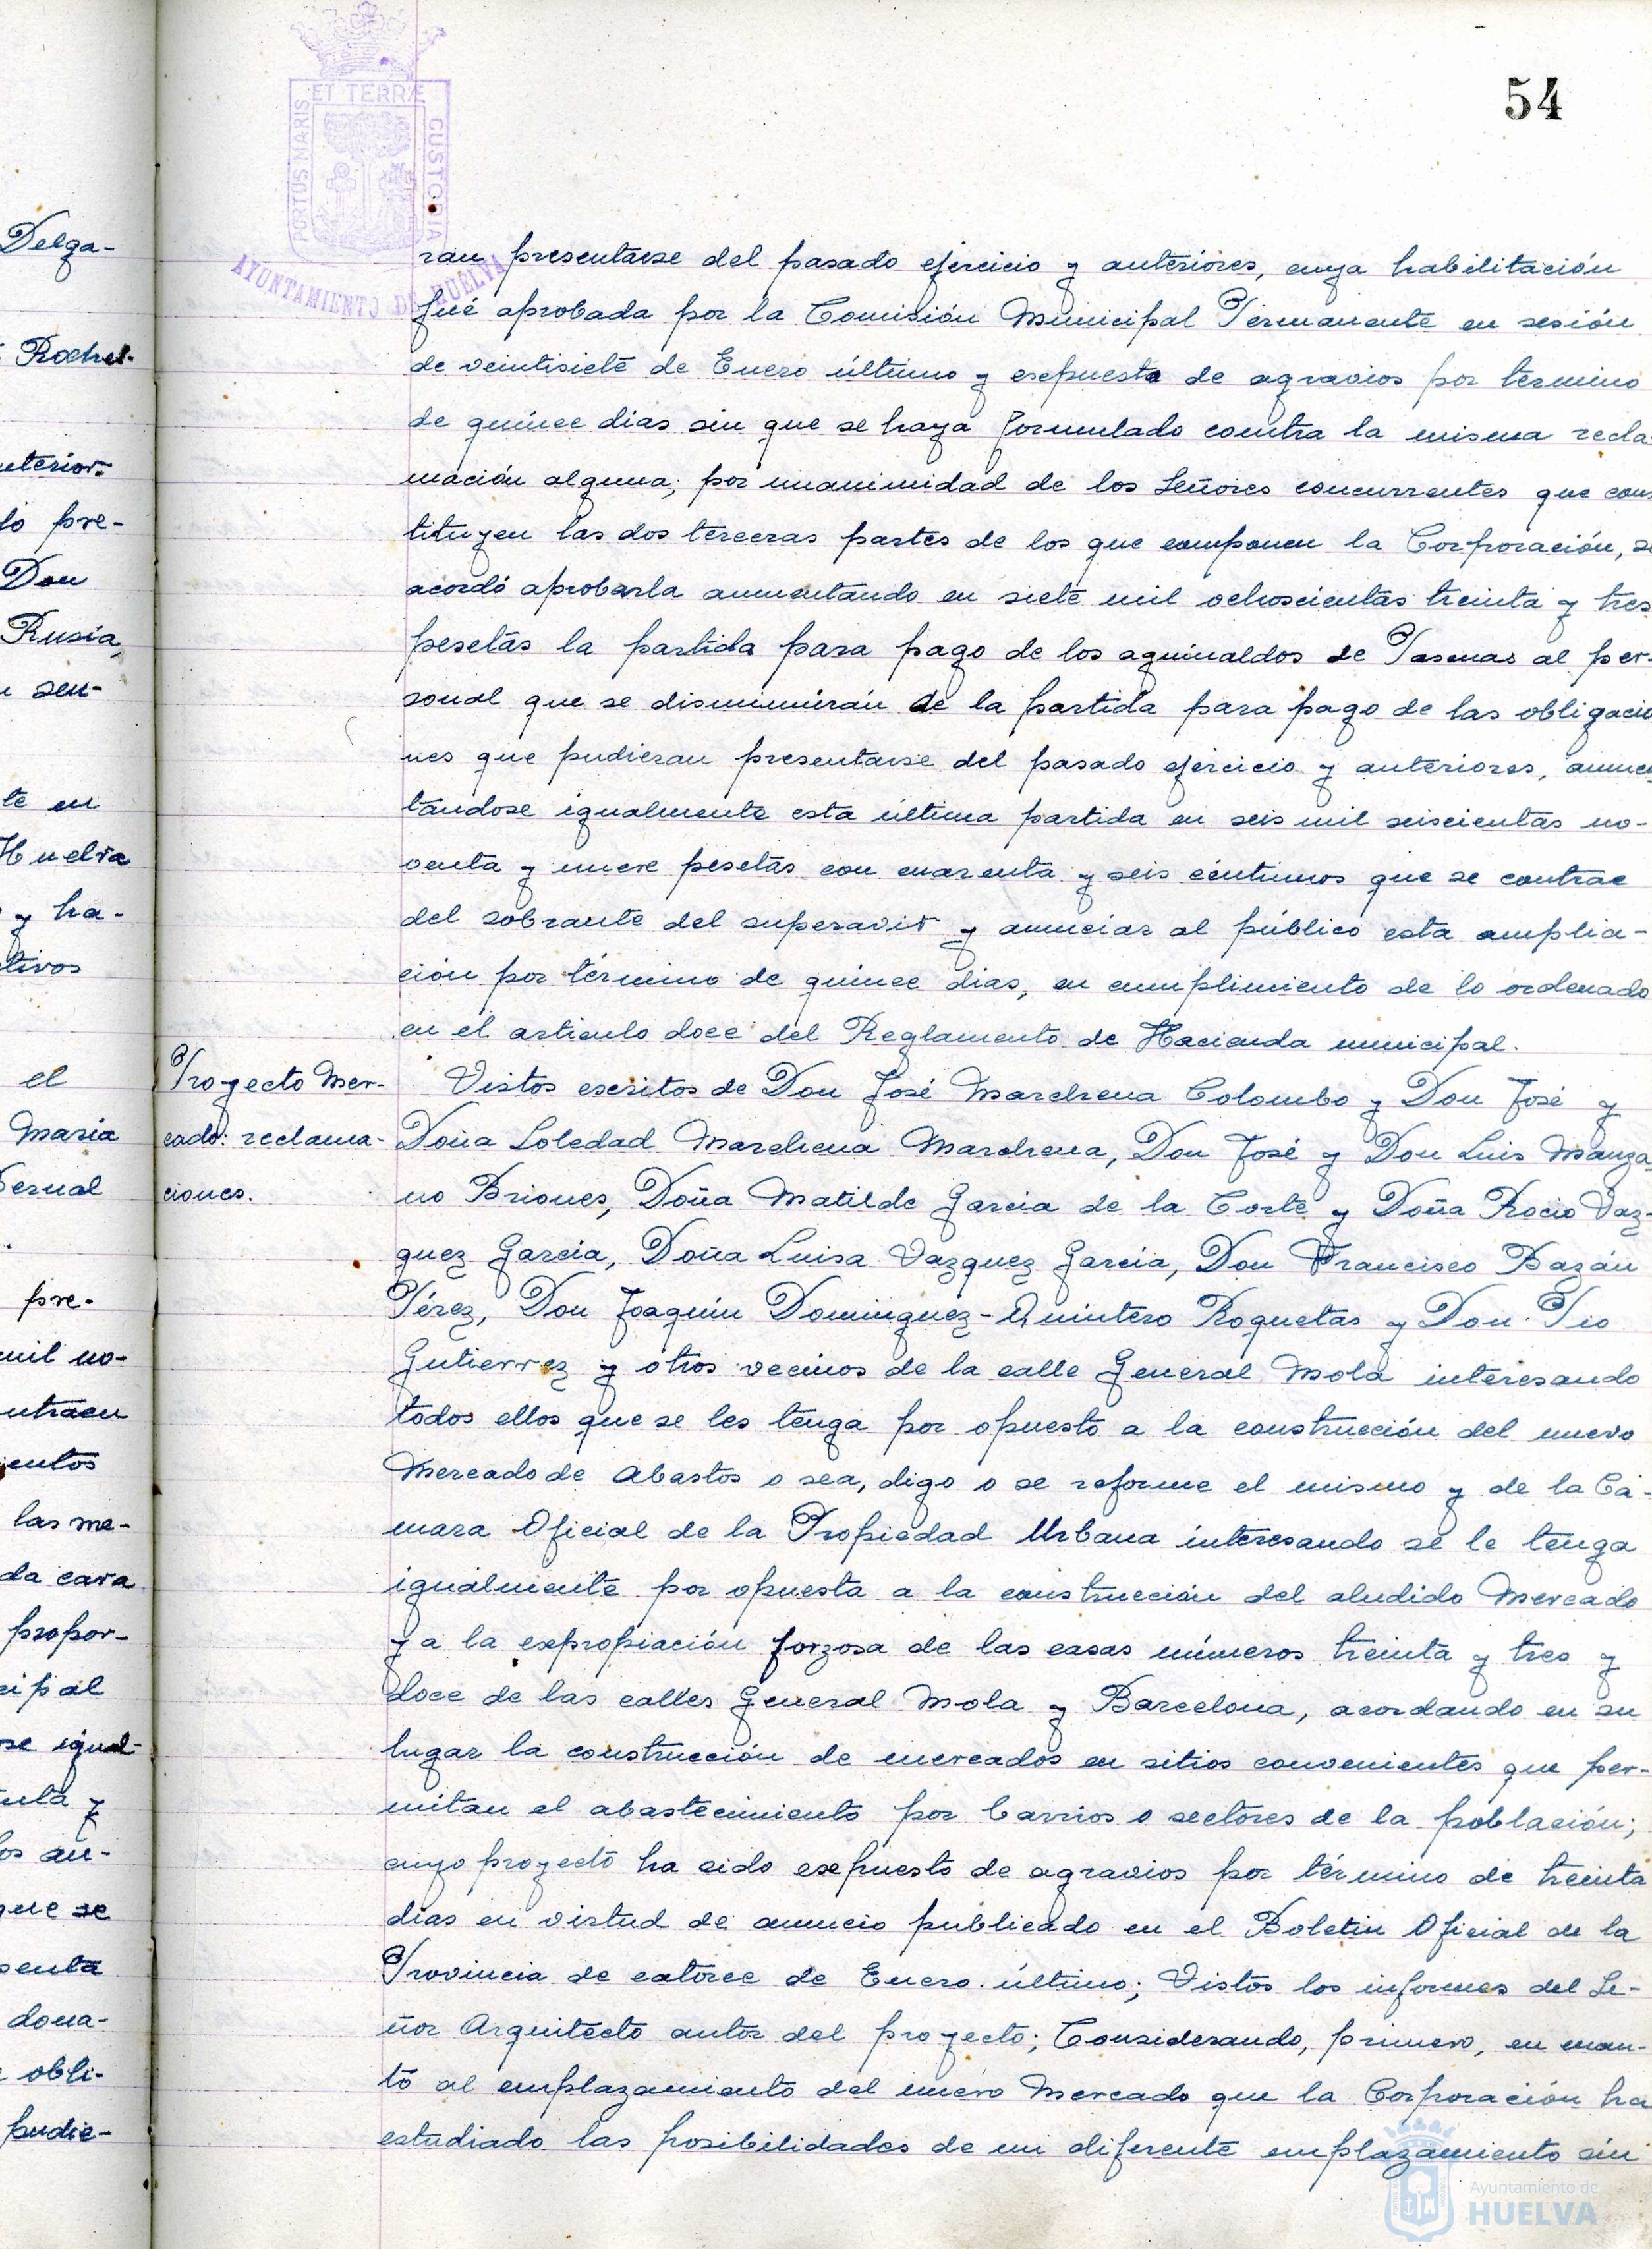 54
PORTUS MARIS ET TERRÆ CUSTODIA
AYUNTAMIENTO DE HUELVA
Delga-
Rochel.
nterior-
lo pre-
Don
Rusia,
sen-
te en
Huelva
y ha-
tivos
el
Maria
Bernal
pre-
mil no-
ntraen
ientos
las me-
da cara
propor-
cipal
se igual-
nta y
os an-
que se
senta
dona-
obli-
pudie-
ran presentarse del pasado ejercicio y anteriores, cuya habilitación
fué aprobada por la Comisión Municipal Permanente en sesión
de veintisiete de Enero último y expuesta de agravios por termino
de quince dias sin que se haya formulado contra la misma recla-
mación alguna; por unanimidad de los Señores concurrentes que cons
tituyen las dos terceras partes de los que componen la Corporación, se
acordó aprobarla aumentando en siete mil ochoscientas treinta y tres
pesetas la partida para pago de los aguinaldos de Pascuas al per-
sonal que se disminuirán de la partida para pago de las obligacio
nes que pudieran presentarse del pasado ejercicio y anteriores, aumen
tándose igualmente esta última partida en seis mil seiscientas no-
venta y nueve pesetas con cuarenta y seis céntimos que se contrae
del sobrante del superavit y anunciar al público esta amplia-
ción por término de quince dias, en cumplimiento de lo ordenado
en el articulo doce del Reglamento de Hacienda municipal.
Proyecto Mer-
cado: reclama-
ciones.
Vistos escritos de Don José Marchena Colombo y Don José y
Doña Soledad Marchena Marchena, Don José y Don Luis Manza
no Briones, Doña Matilde Garcia de la Corte y Doña Rocio Vaz-
quez Garcia, Doña Luisa Vazquez Garcia, Don Francisco Bazán
Pérez, Don Joaquin Dominguez-Quintero Roquetas y Don Pio
Gutierrez y otros vecinos de la calle General Mola interesando
todos ellos que se les tenga por opuesto a la construcción del nuevo
Mercado de Abastos o sea, digo o se reforme el mismo y de la Cá-
mara Oficial de la Propiedad Urbana interesando se le tenga
igualmente por opuesta a la construcción del aludido Mercado
y a la expropiación forzosa de las casas números treinta y tres y
doce de las calles General Mola y Barcelona, acordando en su
lugar la construcción de mercados en sitios convenientes que per-
mitan el abastecimiento por barrios o sectores de la población;
cuyo proyecto ha sido expuesto de agravios por término de treinta
dias en virtud de anuncio publicado en el Boletin Oficial de la
Provincia de catorce de Enero último; Vistos los informes del Se-
ñor Arquitecto autor del proyecto; Considerando, primero, en cuan-
to al emplazamiento del nuevo Mercado que la Corporación ha
estudiado las posibilidades de un diferente emplazamiento sin
Ayuntamiento de
HUELVA